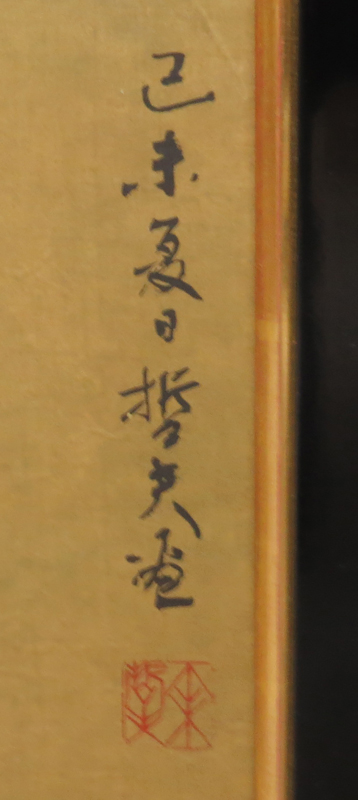 己未夏日哲夫画